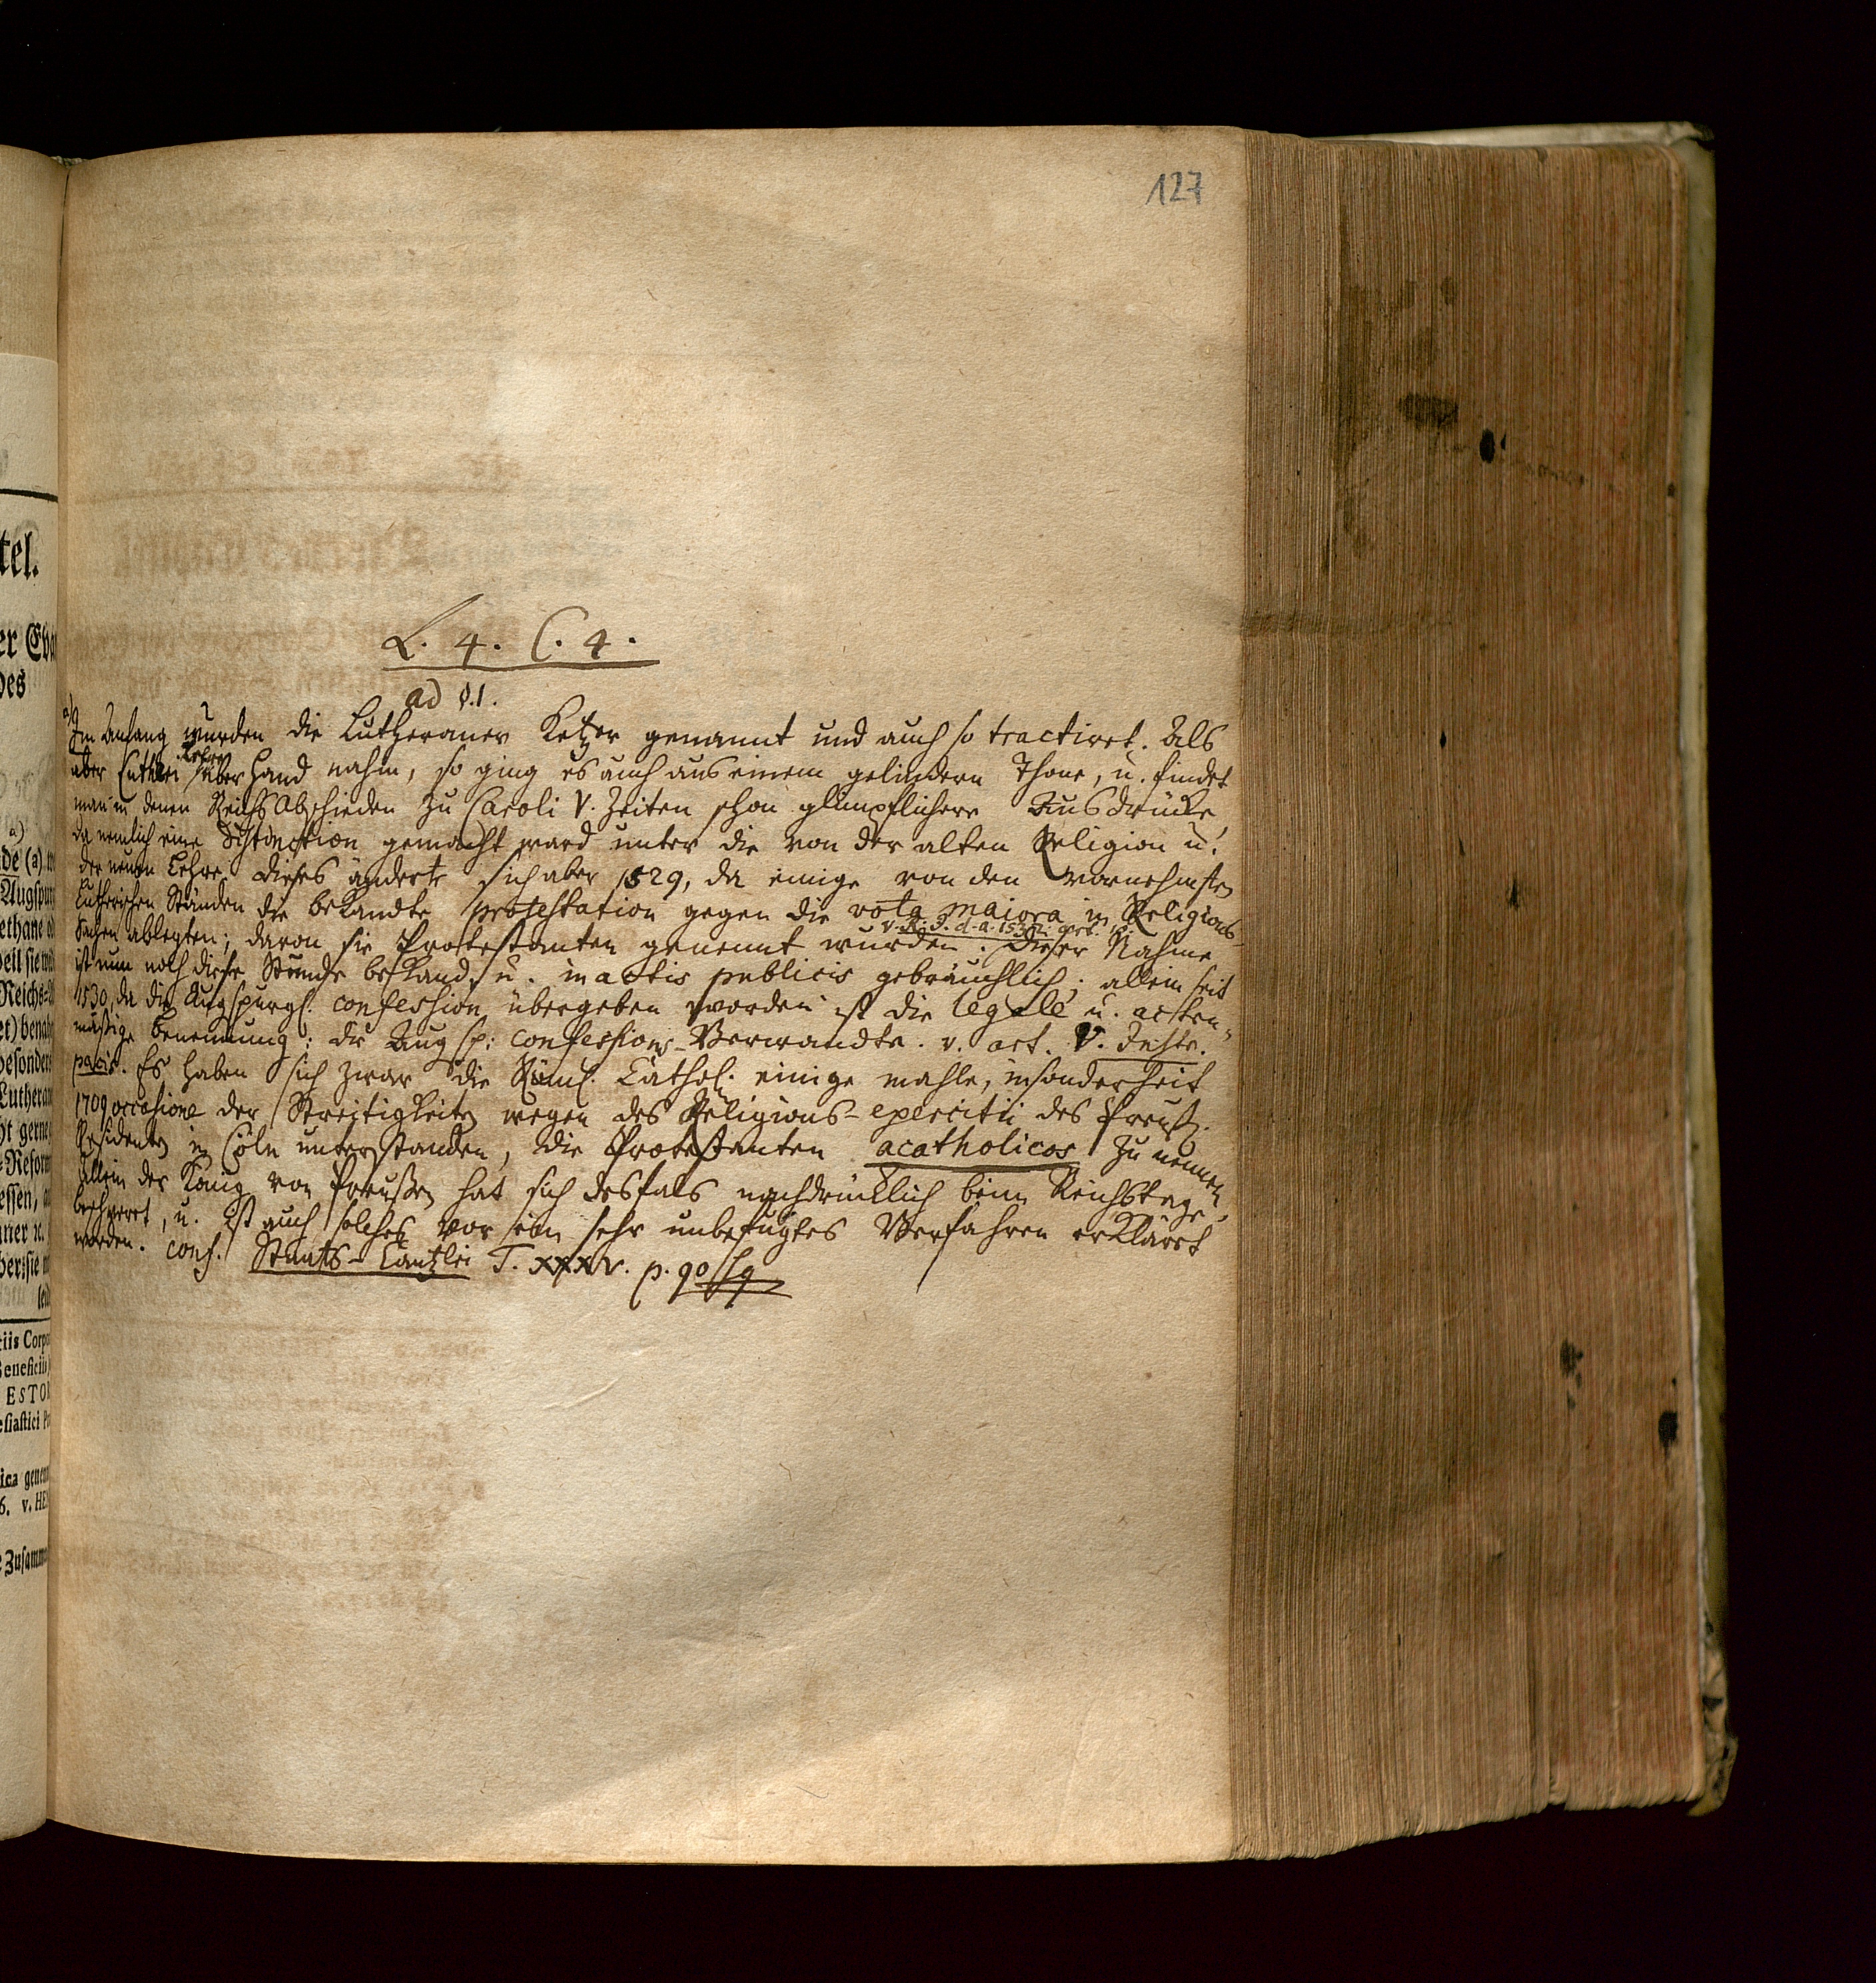 127
L. 4. C. 4.
ad §. 1.
a) Im Anfang wurden die Lutheraner Ketzer genannt und auch so tractiret. Als
aber Lutheri Lehre überhand nahm, so ging es auch aus einem gelindern Thone, u. findet
man in denen Reichs Abschieden zu Caroli V. Zeiten schon glimpflichere Ausdrücke,
da nemlich eine Distinction gemacht ward unter die von der alten Religion u.
der neuen Lehre. Dieses änderte sich aber 1529, da einige von den vornehmsten
Lutherischen Ständen die bekandte protestation gegen die vota maiora in Religions-
Sachen ablegten; davon sie Protestanten genennt wurden. Dieser Nahme
v. R. I. d. a. 1532. art.
ist nun noch diese Stunde bekand, u. in actis publicis gebräuchlich; allein seit
1530, da die Augspurgl. confession übergeben worden ist die legale u. acten-
mäßige Benennung: die Augsp: confessions-Verwandte. v. art. V. Instr.
pacis. Es haben sich zwar die Röml. Cathol. einige mahle, insonderheit
1709 occasione der Streitigkeiten wegen des Religions-exercitii des Preuß.
Residenten in Cöln unterstanden, die Protestanten acatholicos zu nennen,
Allein der König von Preußen hat sich desfals nachdrücklich beim Reichstage
beschweret, u. ist auch solches vor ein sehr unbefugtes Verfahren erkläret
worden. conf. Staats-Cantzlei T. XXXV. p. 90 sq
tel.
er Eva
des
a)
de (a)
Augspur
ethane
eil sie
Reichs-
et) bena
besonder
Lutheran
ht gerne
Reform
essen,
tiis Corpo
Beneficiis
ESTO
esiastici
ica gene
6. v. HE
Zusamm